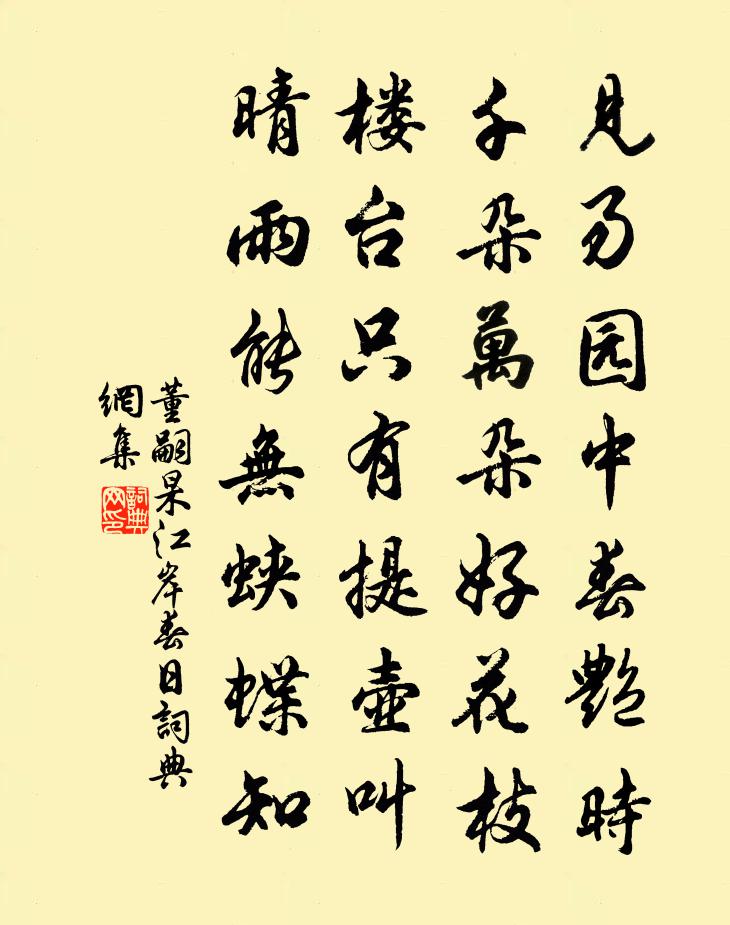 見园中春艷時
千朵萬朵好花枝
楼台只有提壺叫
晴雨能無蛱蝶知
董嗣杲江岸春日詞典
網集
詞典网印